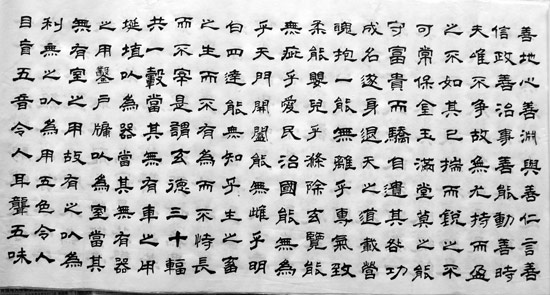 善地心善淵與善仁言善
信政善治事善能動善時
夫唯不爭故無尤持而盈
之不如其已揣而銳之不
可常保金玉滿堂莫之能
守富貴而驕自遺其咎功
成名遂身退天之道載營
魄抱一能無離乎專氣致
柔能嬰兒乎滌除玄覽能
無疵乎愛民治國能無為
乎天門開闔能無雌乎明
白四達能無知乎生之畜
之生而不有為而不恃長
而不宰是謂玄德三十輻
共一轂當其無有車之用
埏埴以為器當其無有器
之用鑿戶牖以為室當其
無有室之用故有之以為
利無之以為用五色令人
目盲五音令人耳聾五味